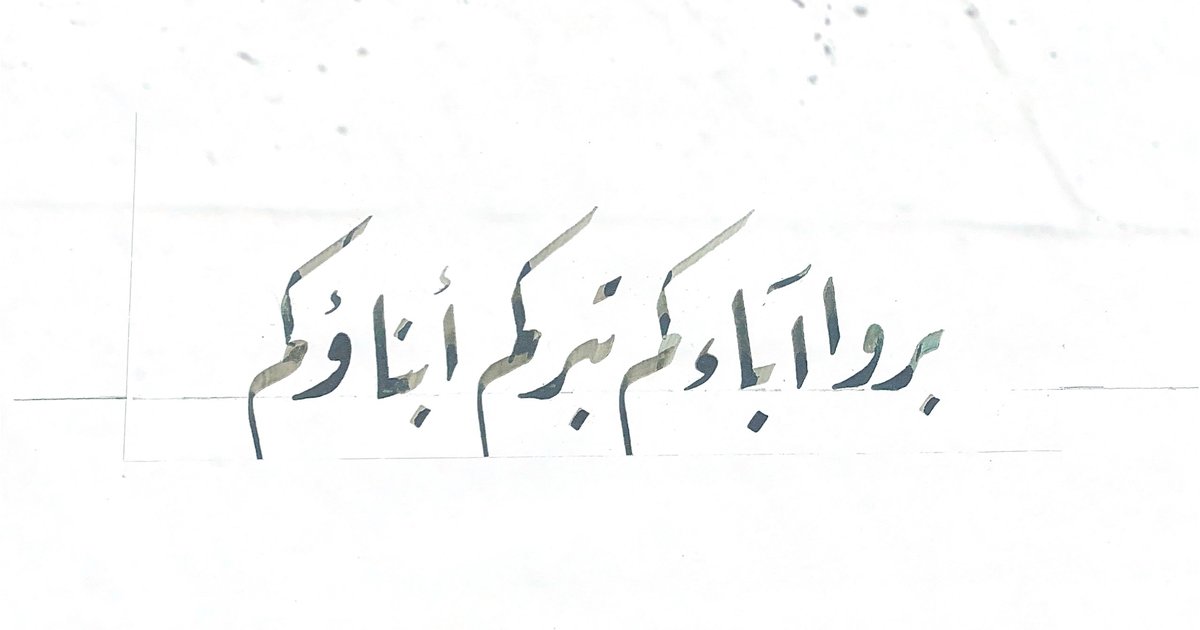 بروا آباءكم تبركم أبناؤكم